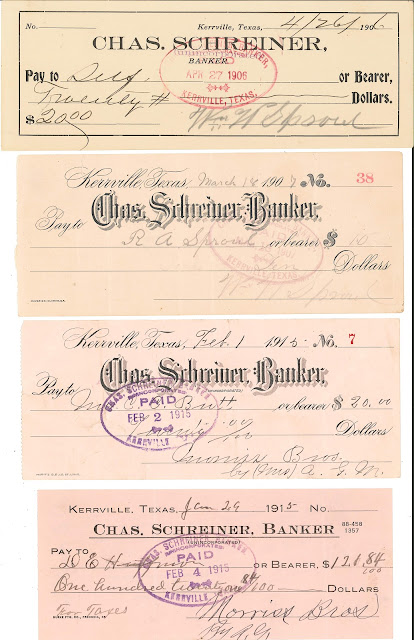 No. Kerrville, Texas, 4/26/ 1906
CHAS. SCHREINER,
BANKER.
Pay to or Bearer,
Twenty # Dollars.
$20.00 Wm W Sproul
CHAS. SCHREINER, BANKER,
(UNINCORPORATED)
PAID
APR 27 1906
KERRVILLE, TEXAS.
Kerrville, Texas March 18 1907 No. 38
Chas. Schreiner, Banker,
Pay to R A Sproul or bearer $ 10
Dollars
W W Sproul
KERRVILLE, TEXAS.
Kerrville, Texas, Feb 1 1915 No. 7
Chas. Schreiner, Banker,
(UNINCORPORATED)
Pay to Butt or bearer $ 20.00
Dollars
Morriss Bros.
by (Mrs) A. G. M.
CHAS. SCHREINER, BANKER
(UNINCORPORATED)
PAID
FEB 2 1915
KERRVILLE
KERRVILLE, TEXAS, Jan 29 1915 No.
CHAS. SCHREINER, BANKER
88-458
1357
(UNINCORPORATED)
PAY TO
D E OR BEARER, $ 120 84/100
One hundred 84/100 DOLLARS
For Taxes Morriss Bros
CHAS. SCHREINER, BANKER
(UNINCORPORATED)
PAID
FEB 4 1915
KERRVILLE